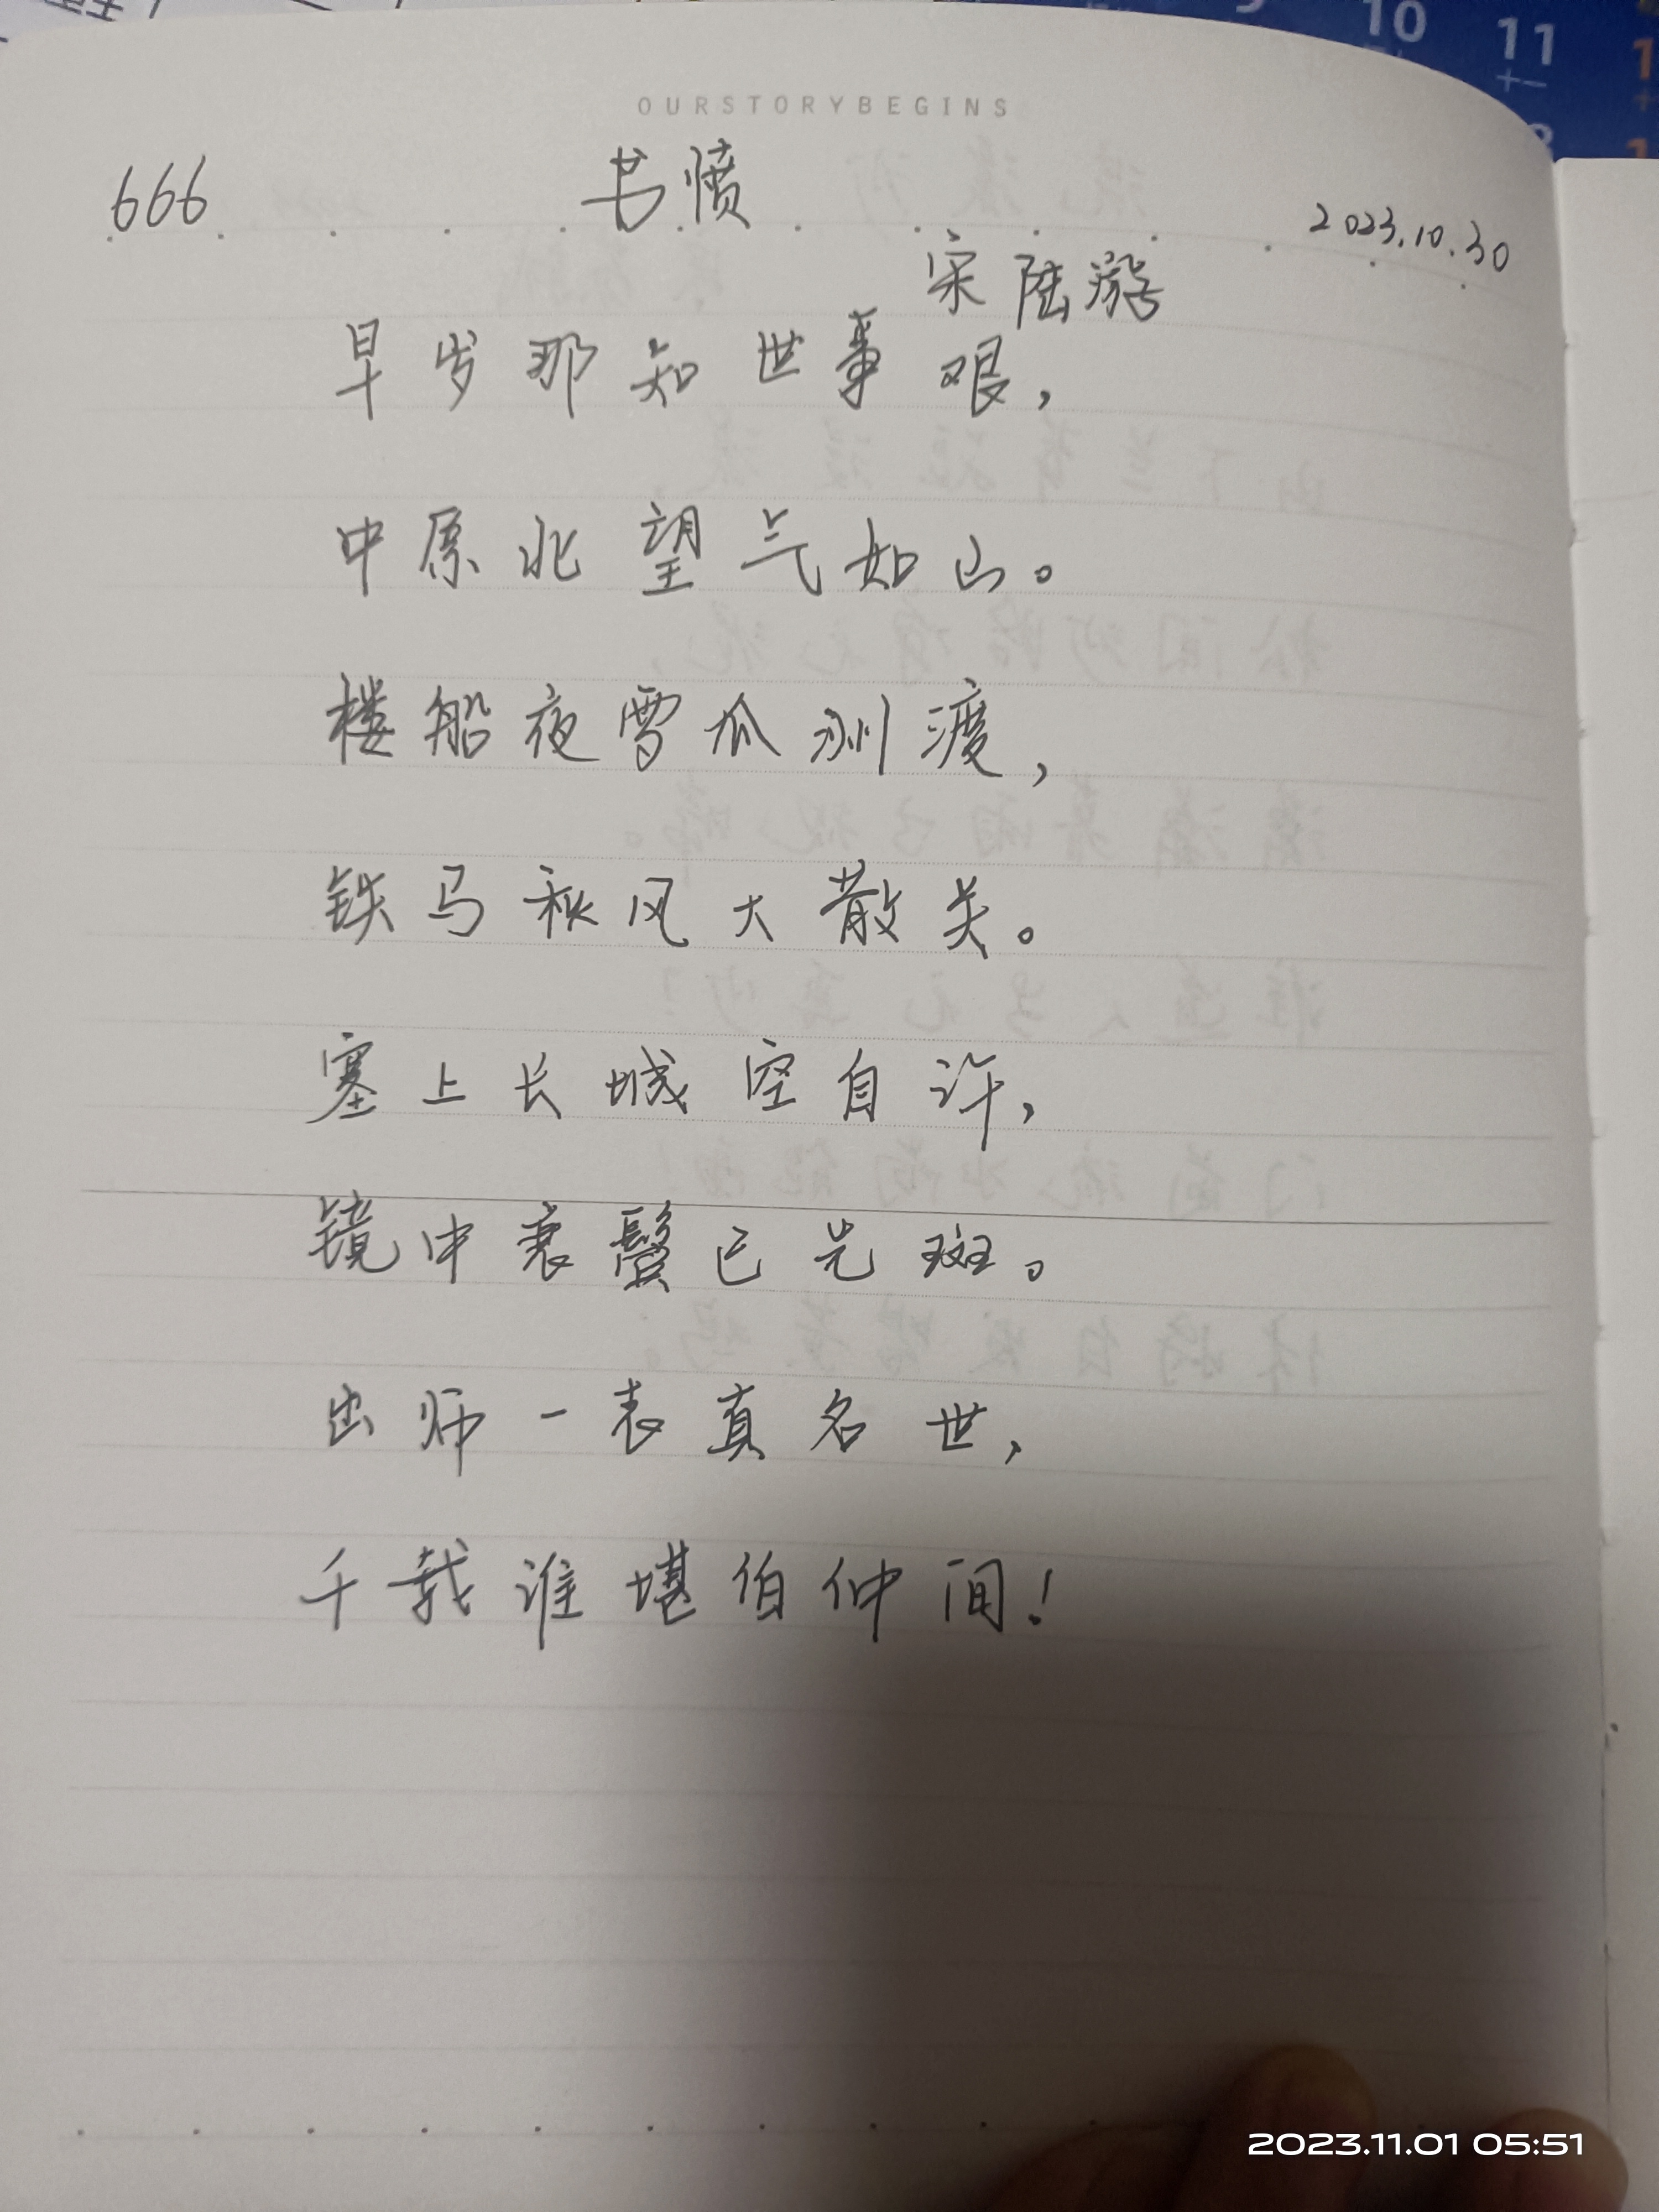 10 11
OURSTORYBEGINS
666 书愤 2023.10.30
宋 陆游
早岁那知世事艰,
中原北望气如山。
楼船夜雪瓜洲渡,
铁马秋风大散关。
塞上长城空自许,
镜中衰鬓已先斑。
出师一表真名世,
千载谁堪伯仲间!
2023.11.01 05:51